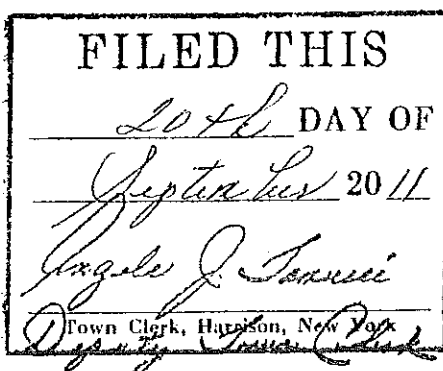 FILED THIS
20th DAY OF
September 20 11
J.
Town Clerk, Harrison, New York
Deputy Town Clerk